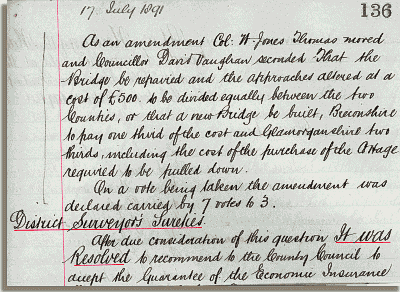 17 July 1891
136
As an amendment Col: W. Jones Thomas moved
and Councillor David Vaughan seconded That the
Bridge be repaired and the approaches altered at a
cost of £500 to be divided equally between the two
Counties, or that a new Bridge be built, Breconshire
to pay one third of the cost and Glamorganshire two
thirds, including the cost of the purchase of the Cottage
required to be pulled down.
On a vote being taken the amendment was
declared carried by 7 votes to 3.
District Surveyor's Sureties.
After due consideration of this question It was
Resolved to recommend to the County Council to
accept the Guarantee of the Economic Insurance